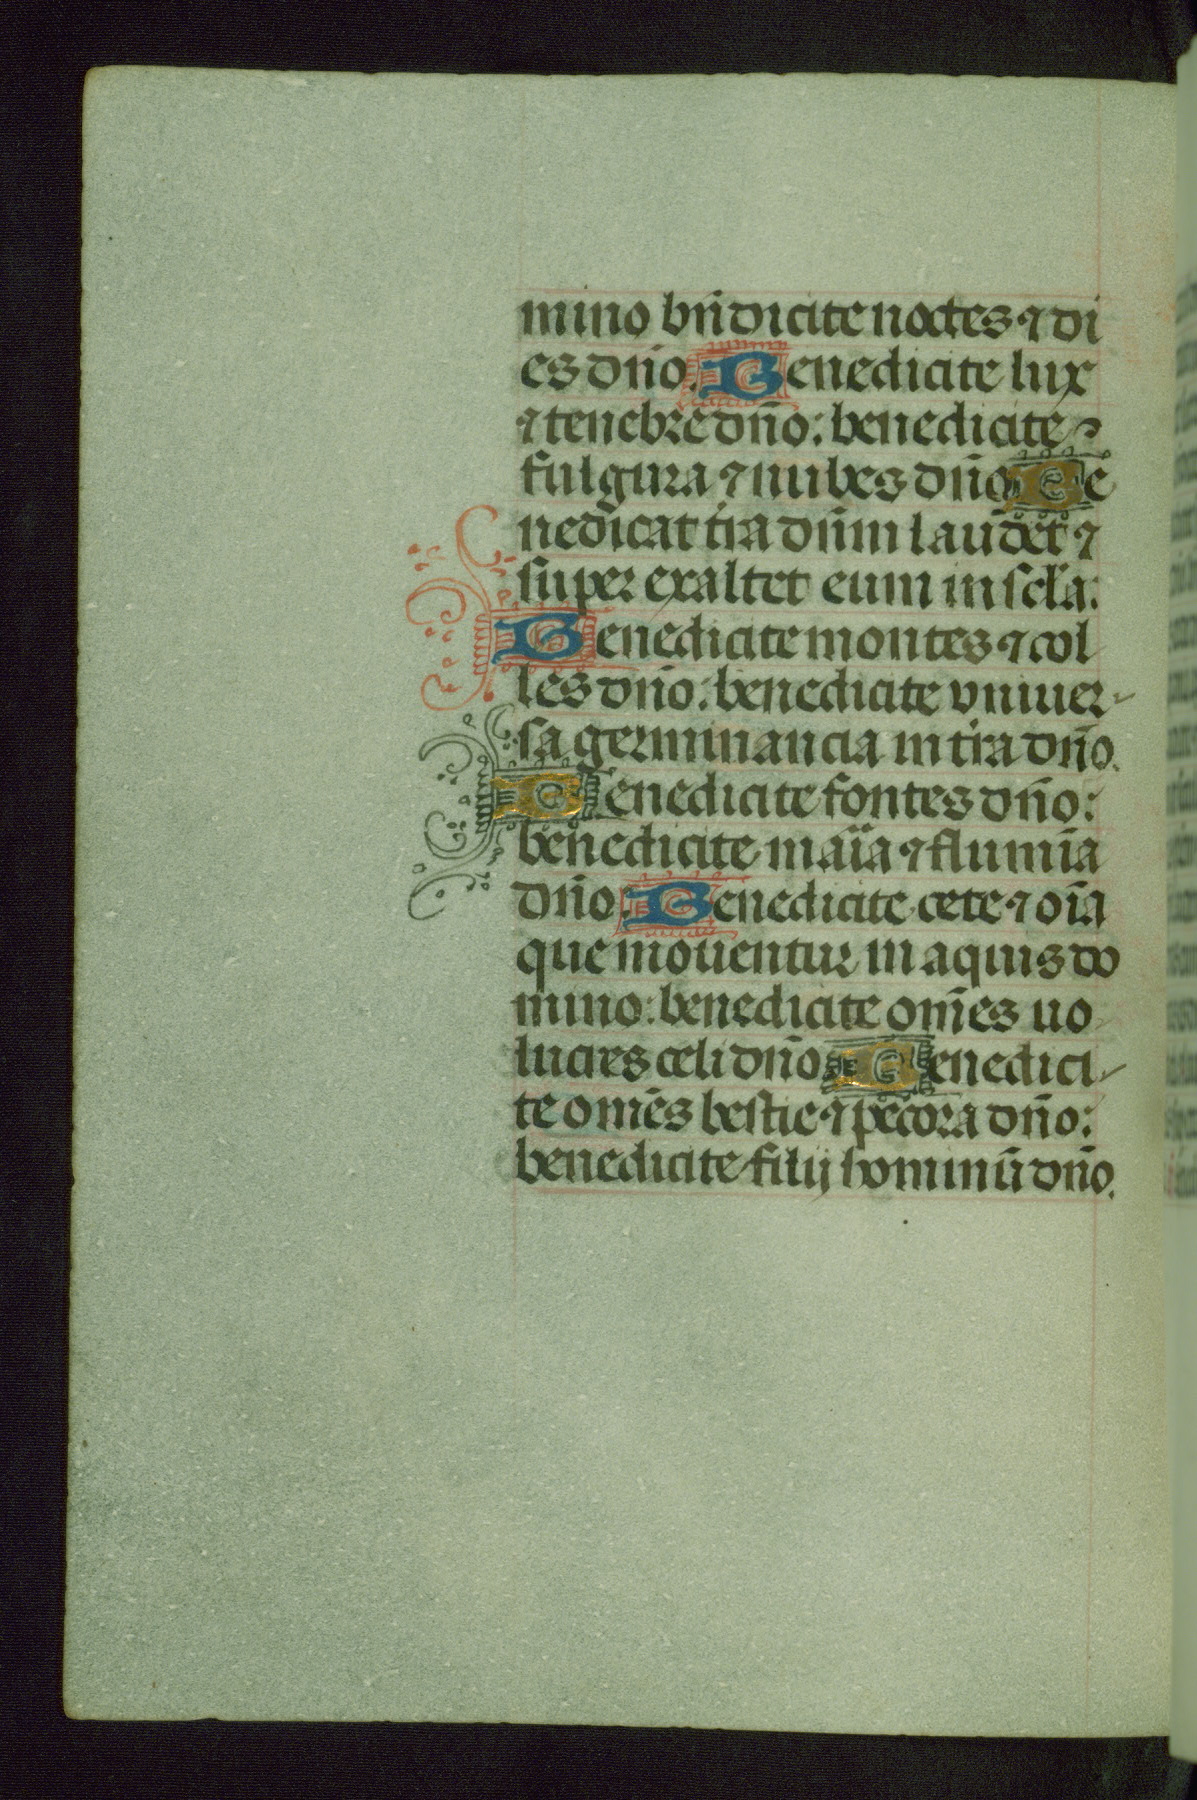 mino bn̄dicite noctes ⁊ di
es dn̄o. Benedicite lux
⁊ tenebre dn̄o: benedicite
fulgura ⁊ nubes dn̄o Be
nedicat t̄ra dn̄m laudet ⁊
super exaltet eum in sc̄la:
Benedicite montes ⁊ col
les dn̄o: benedicite vniuer-
sa germinancia in t̄ra dn̄o.
Benedicite fontes dn̄o:
benedicite maīa ⁊ flumīa
dn̄o: Benedicite cete ⁊ oīa
que mouentur in aquis do
mino: benedicite om̄es uo
lucres celi dn̄o Benedici-
te om̄es bestie ⁊ pecora dn̄o:
benedicite filij hominū dn̄o.